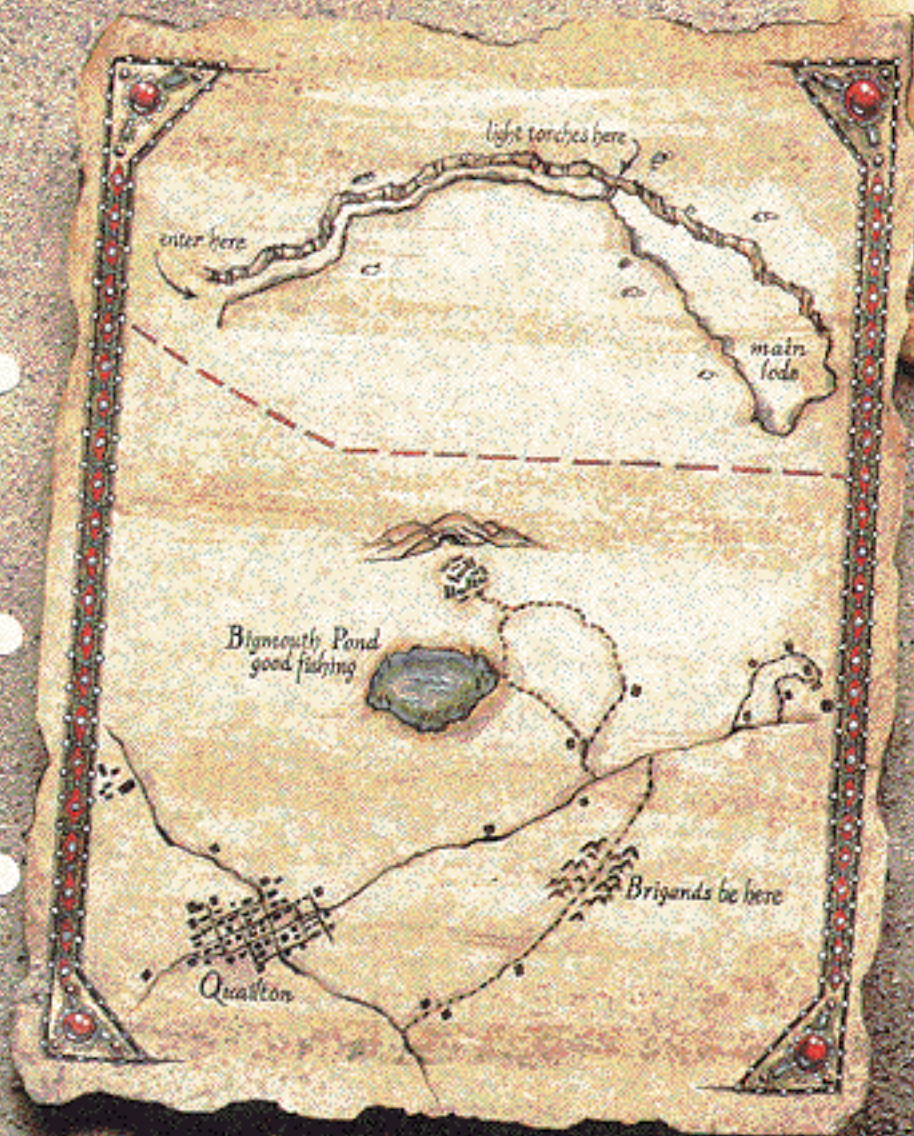 light torches here
enter here
main
lode
Bigmouth Pond
good fishing
Brigands be here
Qualton